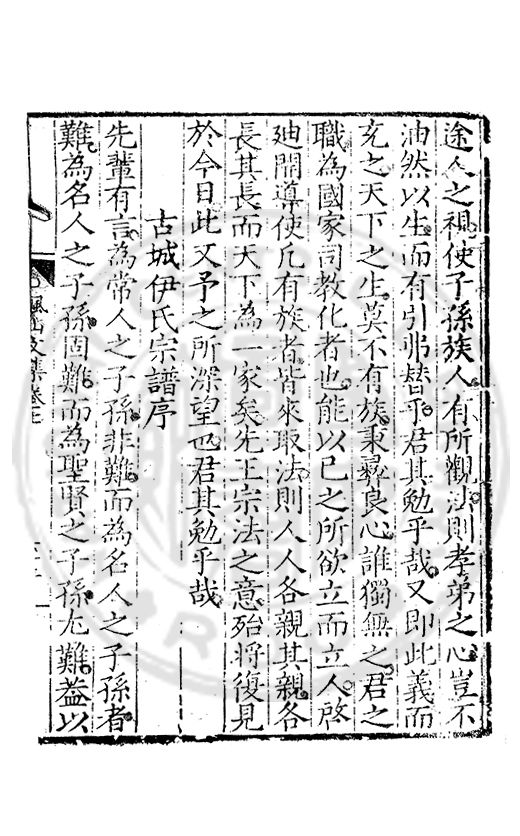 途人之視使子孫族人有所觀法則孝弟之心豈不
油然以生而有引弗替乎君其勉乎哉又即此義而
充之天下之生莫不有族秉彞良心誰獨無之君之
職為國家司教化者也能以已之所欲立而立人啓
廸開導使凢有族者皆來取法則人人各親其親各
長其長而天下為一家矣先王宗法之意殆將復見
於今日此又予之所深望也君其勉乎哉
古城伊氏宗譜序
先輩有言為常人之子孫非難而為名人之子孫者
難為名人之子孫固難而為聖賢之子孫尤難葢以
楓山文集卷七